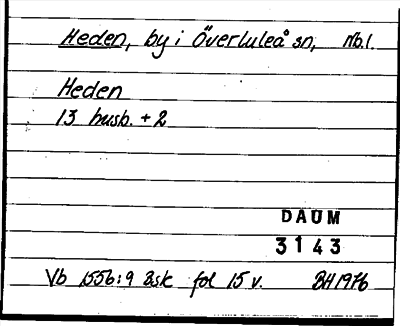 Heden, by i Överluleå sn, Nb.l.
Heden
13 husb. + 2
DAUM
3143
Vb 1556:9 Bsk fol 15 v. BH 1976